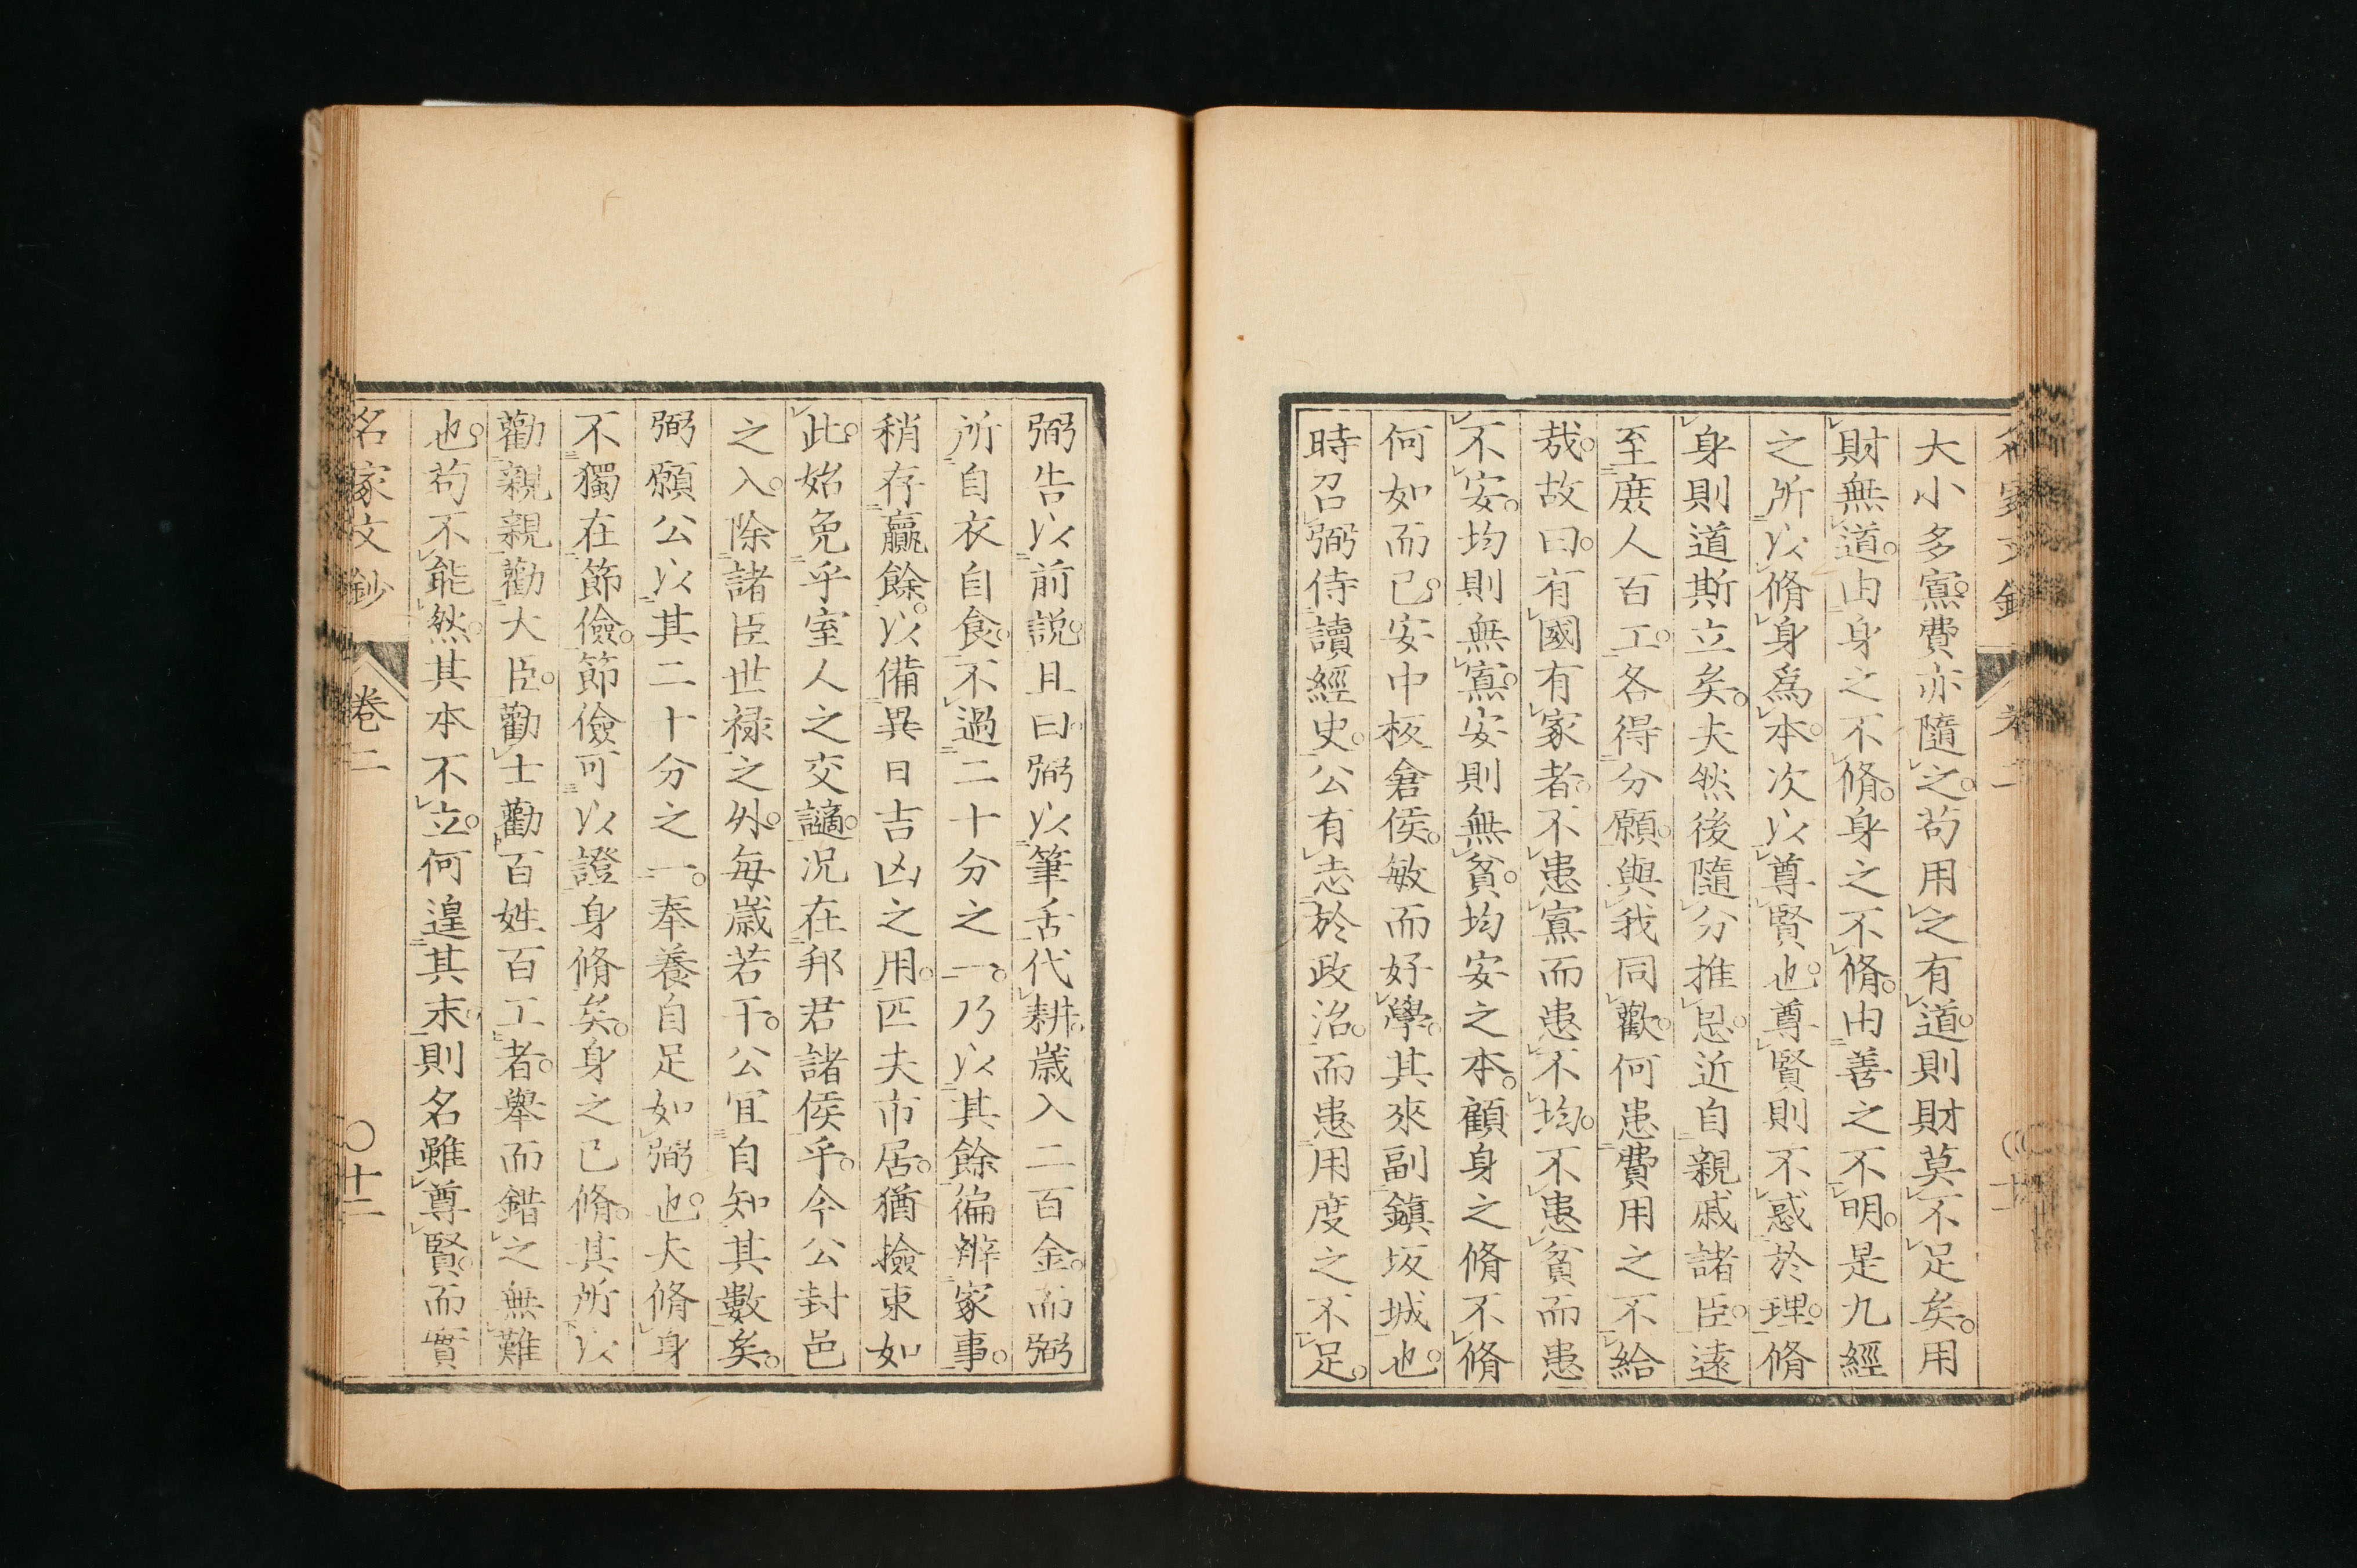 大小多寡。費亦隨之。苟用之有道。則財莫不足矣。用
財無道。由身之不脩。身之不脩。由善之不明。是九經
之所以脩身爲本。次以尊賢也。尊賢則不惑於理。脩
身則道斯立矣。夫然後隨分推恩。近自親戚諸臣。遠
至庶人百工。各得分願。與我同歡。何患費用之不給
哉。故曰。有國有家者。不患寡而患不均。不患貧而患
不安。均則無寡。安則無貧。均安之本。顧身之脩不脩
何如而已。安中板倉侯。敏而好學。其來副鎭坂城也。
時召弼侍讀經史。公有志於政治。而患用度之不足。
弼告以前説。且曰。弼以筆舌代耕。歳入二百金。而弼
所自衣自食。不過二十分之一。乃以其餘徧辨家事。
稍存贏餘。以備異日吉凶之用。匹夫市居。猶撿束如
此。始免乎室人之交讁。况在邦君諸侯乎。今公封邑
之入。除諸臣世禄之外。毎歳若干。公宜自知其數矣。
弼願公以其二十分之一。奉養自足如弼也。夫脩身
不獨在節儉。節儉可以證身脩矣。身之已脩。其所以
勸親親勸大臣。勸士勸百姓百工者。擧而錯之無難
也。苟不能然。其本不立。何遑其末。則名雖尊賢。而實
名家文鈔 卷二 〇十二